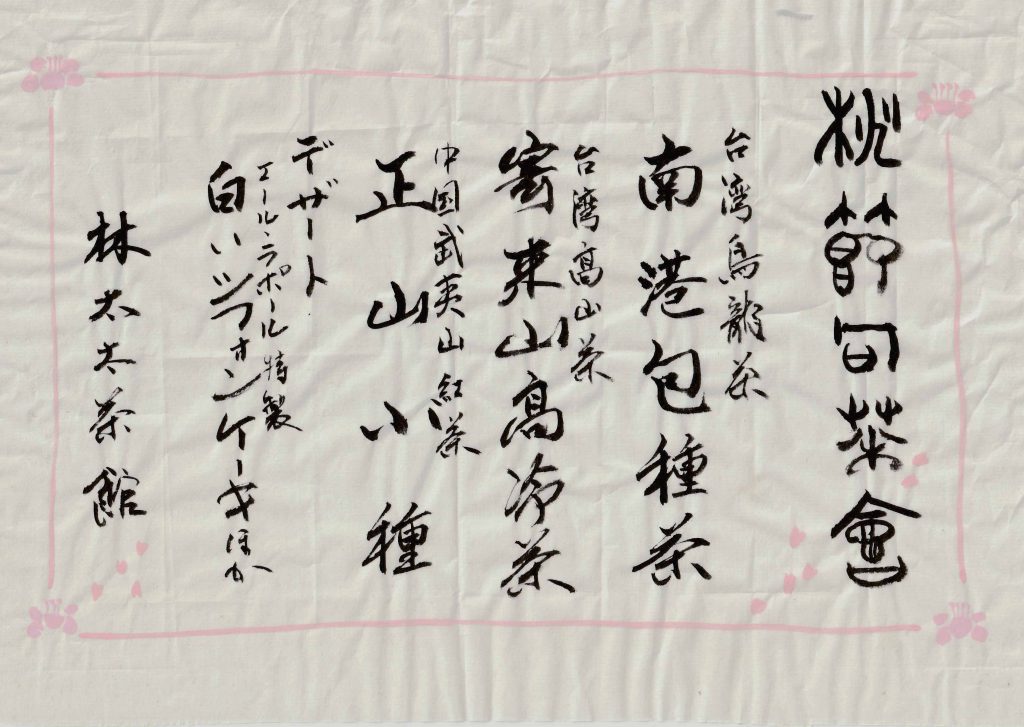 桃節句茶會
台湾烏龍茶
南港包種茶
台湾高山茶
来山高冷茶
中国武夷山紅茶
正山小種
デザート
エール・ラポール特製
白いシフォンケーキほか
林太太茶館